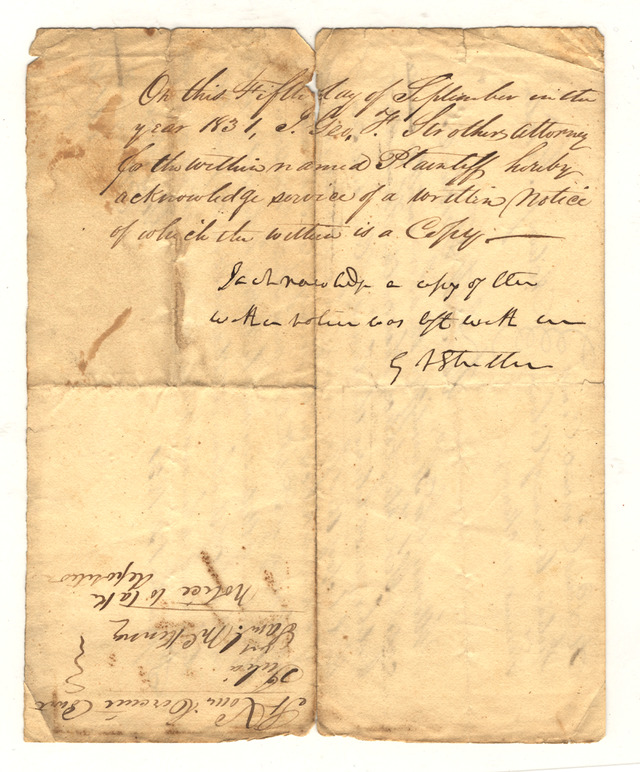 On this Fifth day of September in the
year 1831, I. Geo. F. Strother attorney
for the within named Plaintiff hereby
acknowledge service of a written Notice
of which the within is a Copy.
I acknowledge a copy of the
within notice was left with me
G F Strother
St Louis Circuit Court
Julia
vs
Saml McKenny
Notice to take